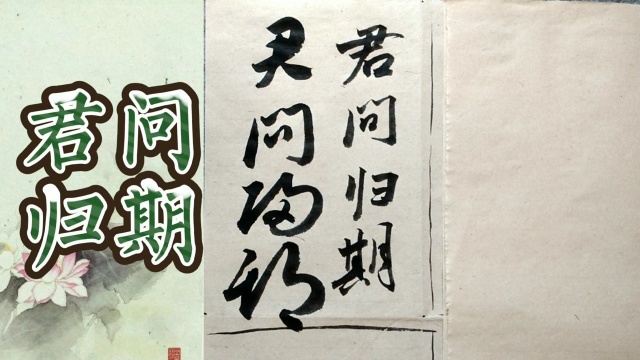 君问
归期
君问归期
君问归期